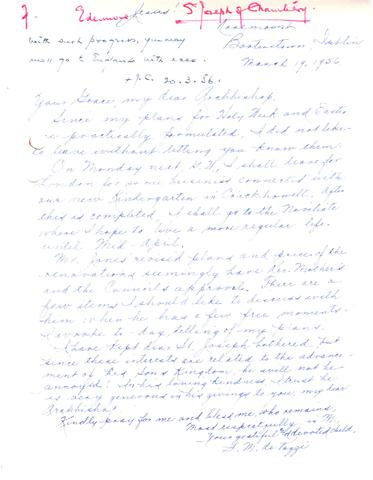 Jesus!
Edenmore
St Joseph of Chambéry.
Rosemount
Booterstown, Dublin
March 19, 1956
with such progress, you may
well go to England with ease.
+ J.C. 20-3-56.
Your Grace, my dear Archbishop,
Since my plans for Holy Week and Easter
are practically formulated, I did not like
to leave without letting you know them.
On Monday next, G.W., I shall leave for
London for some business connected with
our new Kindergarten in Crickhowell. After
this is completed, I shall go to the Novitiate
where I hope to live a more regular life
until Mid-April.
Mr. Jones' revised plans and prices of the
renovations seemingly have Rev. Mother's
and the Council's approval. There are a
few items I should like to discuss with
them when he has a few free moments.
I wrote to-day, telling of my plans.
I have kept dear St. Joseph bothered, but
since these interests are related to the advance-
ment of his Son's Kingdom, he will not be
annoyed! In his loving kindness I trust he
is very generous in his givings to you, my dear
Archbishop!
Kindly pray for me and bless me, who remains,
Most respectfully in M.
Your grateful & devoted child,